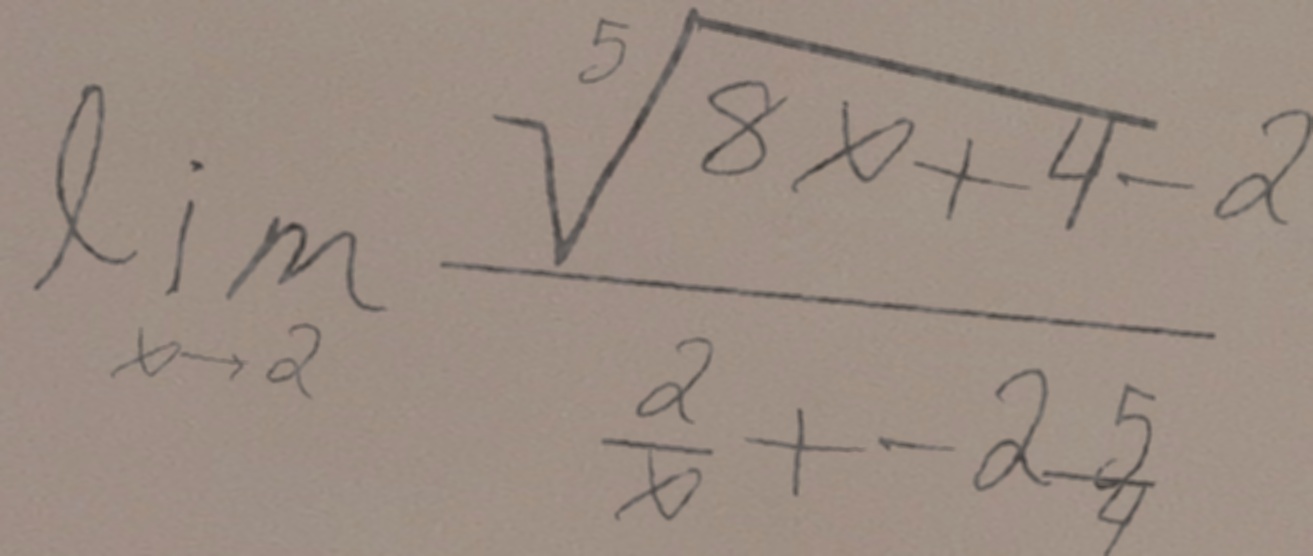 \lim_{x \to 2} \frac{\sqrt[5]{8x+4}-2}{\frac{2}{x}+-2\frac{5}{4}}